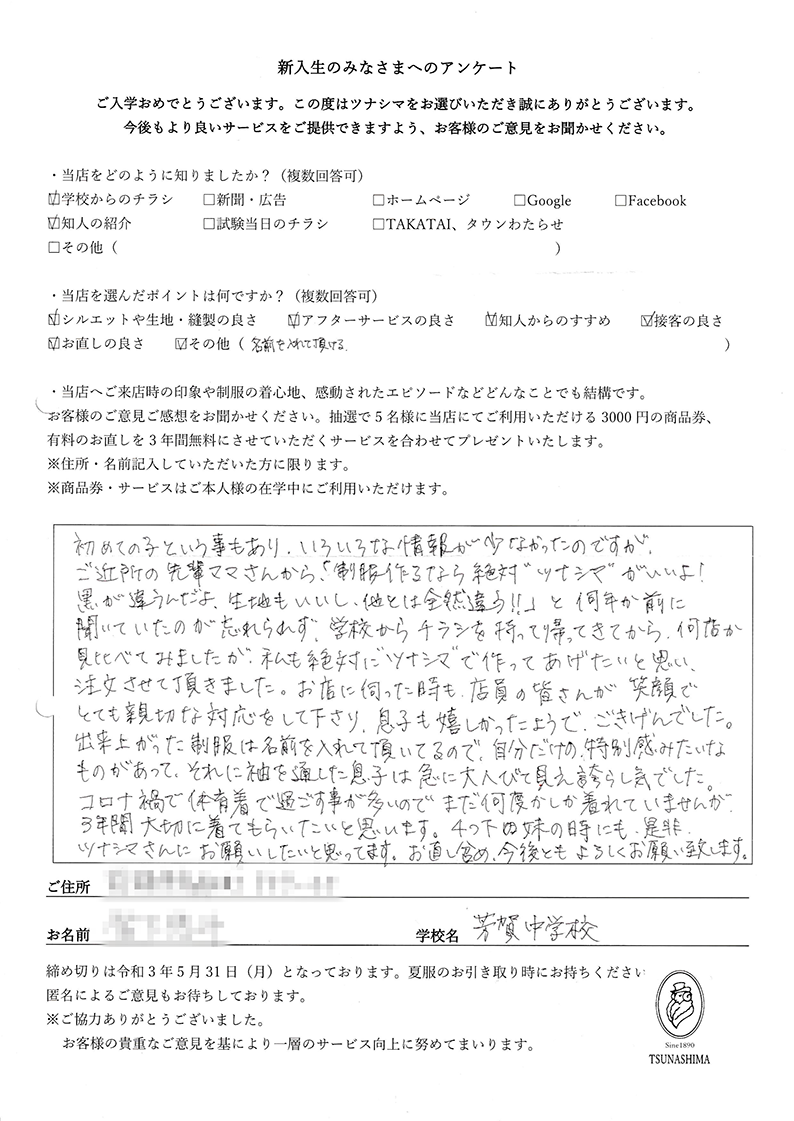 新入生のみなさまへのアンケート
ご入学おめでとうございます。この度はツナシマをお選びいただき誠にありがとうございます。
今後もより良いサービスをご提供できますよう、お客様のご意見をお聞かせください。
・当店をどのように知りましたか？（複数回答可）
☑学校からのチラシ □新聞・広告 □ホームページ □Google □Facebook
☑知人の紹介 □試験当日のチラシ □TAKATAI、タウンわたらせ
□その他（ ）
・当店を選んだポイントは何ですか？（複数回答可）
☑シルエットや生地・縫製の良さ ☑アフターサービスの良さ ☑知人からのすすめ ☑接客の良さ
☑お直しの良さ ☑その他（ 名前を入れて頂ける。 ）
・当店へご来店時の印象や制服の着心地、感動されたエピソードなどどんなことでも結構です。
お客様のご意見ご感想をお聞かせください。抽選で５名様に当店にてご利用いただける 3000 円の商品券、
有料のお直しを３年間無料にさせていただくサービスを合わせてプレゼントいたします。
※住所・名前記入していただいた方に限ります。
※商品券・サービスはご本人様の在学中にご利用いただけます。
初めての子という事もあり、いろいろな情報が少なかったのですが、
ご近所の先輩ママさんから、「制服作るなら絶対“ツナシマ”がいいよ！
黒が違うんだよ、生地もいいし、他とは全然違う!!」と何年か前に
聞いていたのが忘れられず、学校からチラシを持って帰ってきてから、何店か
見比べてみましたが、私も絶対に“ツナシマ”で作ってあげたいと思い、
注文させて頂きました。お店に伺った時も、店員の皆さんが笑顔で
とても親切な対応をして下さり、息子も嬉しかったようで、ごきげんでした。
出来上がった制服は名前を入れて頂いてるので、自分だけの、特別感みたいな
ものがあって、それに袖を通した息子は急に大人びて見え誇らし気でした。
コロナ禍で体育着で過ごす事が多いのでまだ何度かしか着れていませんが、
3年間大切に着てもらいたいと思います。4つ下の妹の時にも、是非、
ツナシマさんにお願いしたいと思ってます。お直し含め、今後ともよろしくお願い致します。
ご住所
お名前 学校名 芳賀中学校
締め切りは令和３年５月 31 日（月）となっております。夏服のお引き取り時にお持ちください
匿名によるご意見もお待ちしております。
※ご協力ありがとうございました。
お客様の貴重なご意見を基により一層のサービス向上に努めてまいります。
Sine1890
TSUNASHIMA